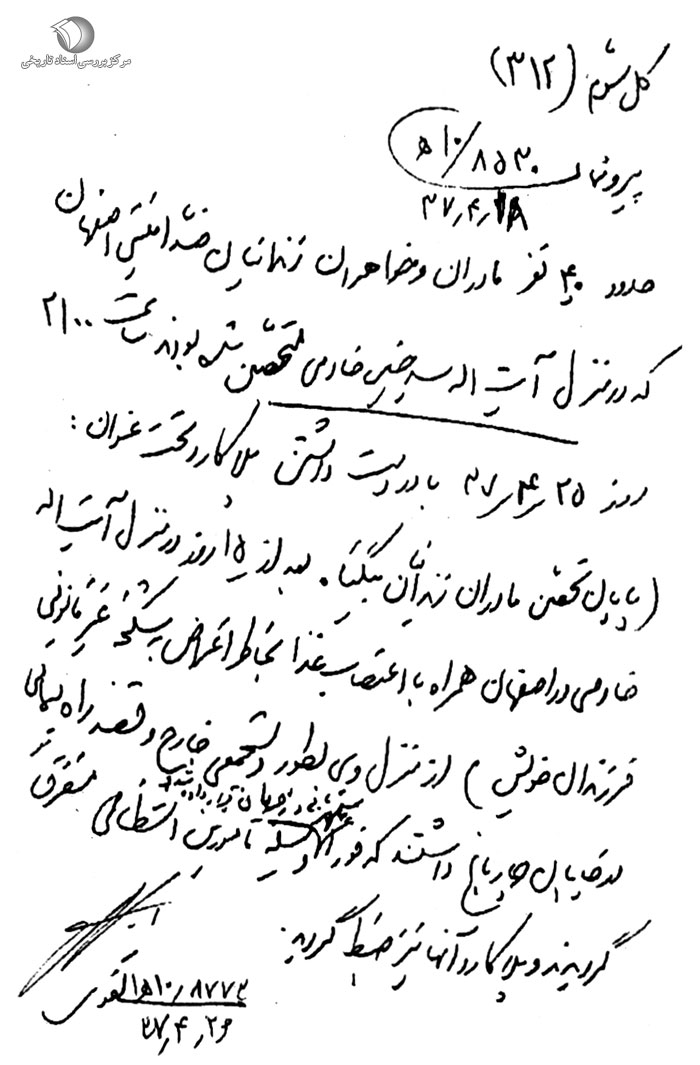 مرکز بررسی اسناد تاریخی
کل سوم (۳۱۲)
پیرو شماره ۸۵۳۰/۱۰ه‍
۳۷٫۴٫
حدود ۴۰ نفر مادران و خواهران زندانیان ضدامنیتی اصفهان
که در منزل آیت اله سید حسین خادمی متحصن شده بودند ساعت ۲۱۰۰
روز ۲۵ر۴ر۳۷ با در دست داشتن پلاکارد تحت عنوان :
(پایان تحصن مادران زندانیان بعد از ۱۵ روز در منزل آیت اله
خادمی در اصفهان همراه با اعتصاب غذا بخاطر اعتراض بشکنجه غیر قانونی
فرزندان خویش) از منزل وی بطور دستجمعی خارج و قصد راه پیمائی
در خیابان چهارباغ داشتند که فوراً وسیله مامورین انتظامی متفرق
گردیدند و پلاکارد آنها نیز ضبط گردید.
۸۷۷۲/۱۰ه‍
۳۷٫۴٫۲۶